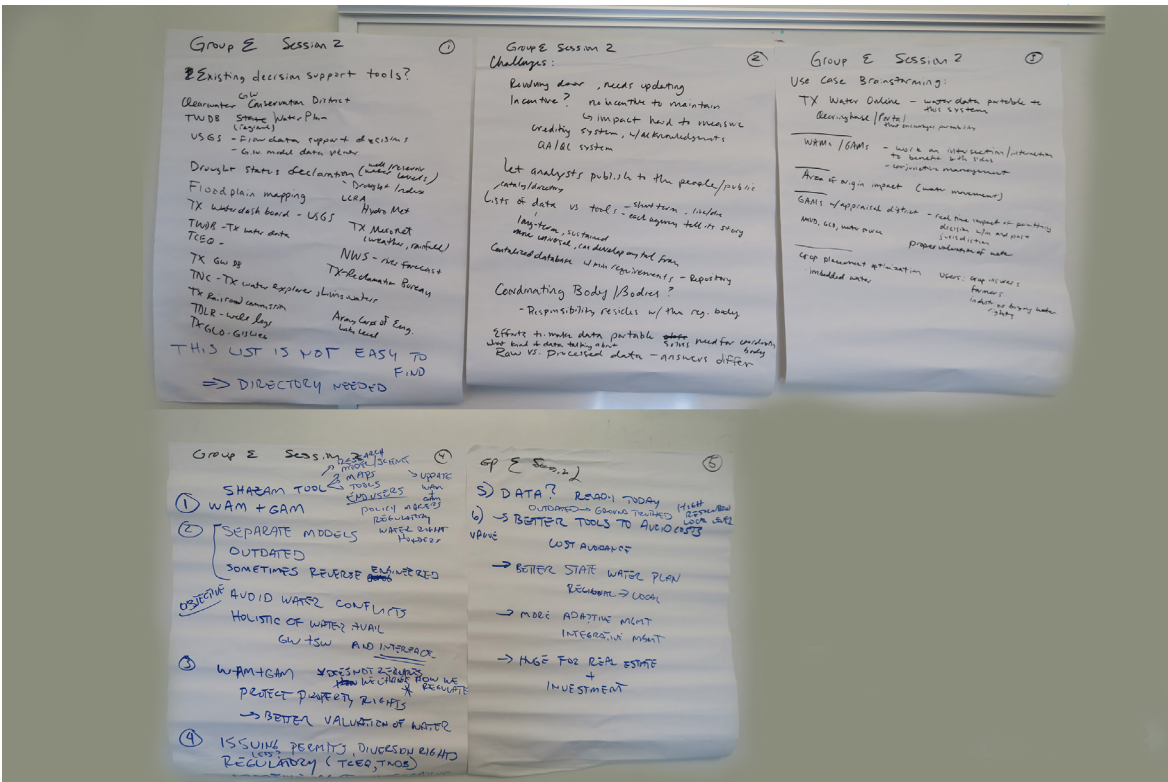 Group E Session 2 ①
Existing decision support tools?
Clearwater GW Conservation District
TWDB State Water Plan
(regional)
USGS - Flow data support decisions
- G.W. model data viewer
Drought status declaration (well/reservoir
(water levels)
- Drought Index
Floodplain mapping LCRA
Hydro Met
TX Water dash board - USGS
TX Mesonet
(weather, rainfall)
TWDB - TX water data
TCEQ -
NWS - river forecast
TX GW DB
TX-Reclamation Bureau
TNC - TX water explorer, Living waters
TX Railroad commission
TDLR - well logs
Army Corps of Eng.
Lake level
TX GLO - GIS Web
THIS LIST IS NOT EASY TO
FIND
⇒ DIRECTORY NEEDED
Group E Session 2 ②
Challenges:
Revolving door, needs updating
Incentive? no incentive to maintain
↳ impact hard to measure
crediting system, w/acknowledgments
QA/QC system
Let analysts publish to the people/public
catalog/directory
Lists of data vs tools - short term, live/die
- each agency tell its story
long-term, sustained
more universal, can develop any tool from
Centralized database w/ min requirements - Repository
Coordinating Body/Bodies?
- Responsibility resides w/ the reg. body
Efforts to make data portable silos need for coordinating
body
what kind of data talking about
Raw vs. Processed data - answers differ
Group E Session 2 ③
Use Case Brainstorming:
TX Water Online - water data portable to
this system
Clearinghouse/Portal
this encourages portability
WAMs/GAMs - work on intersection/interaction
to benefit both sides
- conjunctive management
Area of origin impact (water movement)
GAMs w/appraisal district - real time impact of permitting
decision w/in and past
jurisdiction
MUD, GCD, water source
proper valuation of water
Crop placement optimization
imbedded water
Users: Crop insurers
farmers
industry buying water
rights
Group E Session 2 ④
RESEARCH
MODEL/SCIENCE
MAPS
SHAZAM TOOL TOOLS
→ UPDATE
WAM
+
GAM
END USERS
POLICY MAKERS
REGULATORY
WATER RIGHT
HOLDERS
① WAM + GAM
② SEPARATE MODELS
OUTDATED
SOMETIMES REVERSE ENGINEERED
OBJECTIVE AVOID WATER CONFLICTS
HOLISTIC OF WATER AVAIL
GW + SW AND INTERFACE
③ WAM+GAM * DOES NOT REQUIRE
WE CHANGE HOW WE
* REGULATE
PROTECT PROPERTY RIGHTS
→ BETTER VALUATION OF WATER
④ ISSUING PERMITS, DIVERSION RIGHTS
REGULATORY (TCEQ, TWDB)
GP E Sess. 2 ⑤
5) DATA? READY TODAY
OUTDATED → GROUND TRUTHED
HIGH
RESOLUTION
LOCAL LEVEL
6) → BETTER TOOLS TO AVOID COSTS
VALUE
COST AVOIDANCE
→ BETTER STATE WATER PLAN
REGIONAL → LOCAL
→ MORE ADAPTIVE MGMT
INTEGRATIVE MGMT
→ HUGE FOR REAL ESTATE
+
INVESTMENT